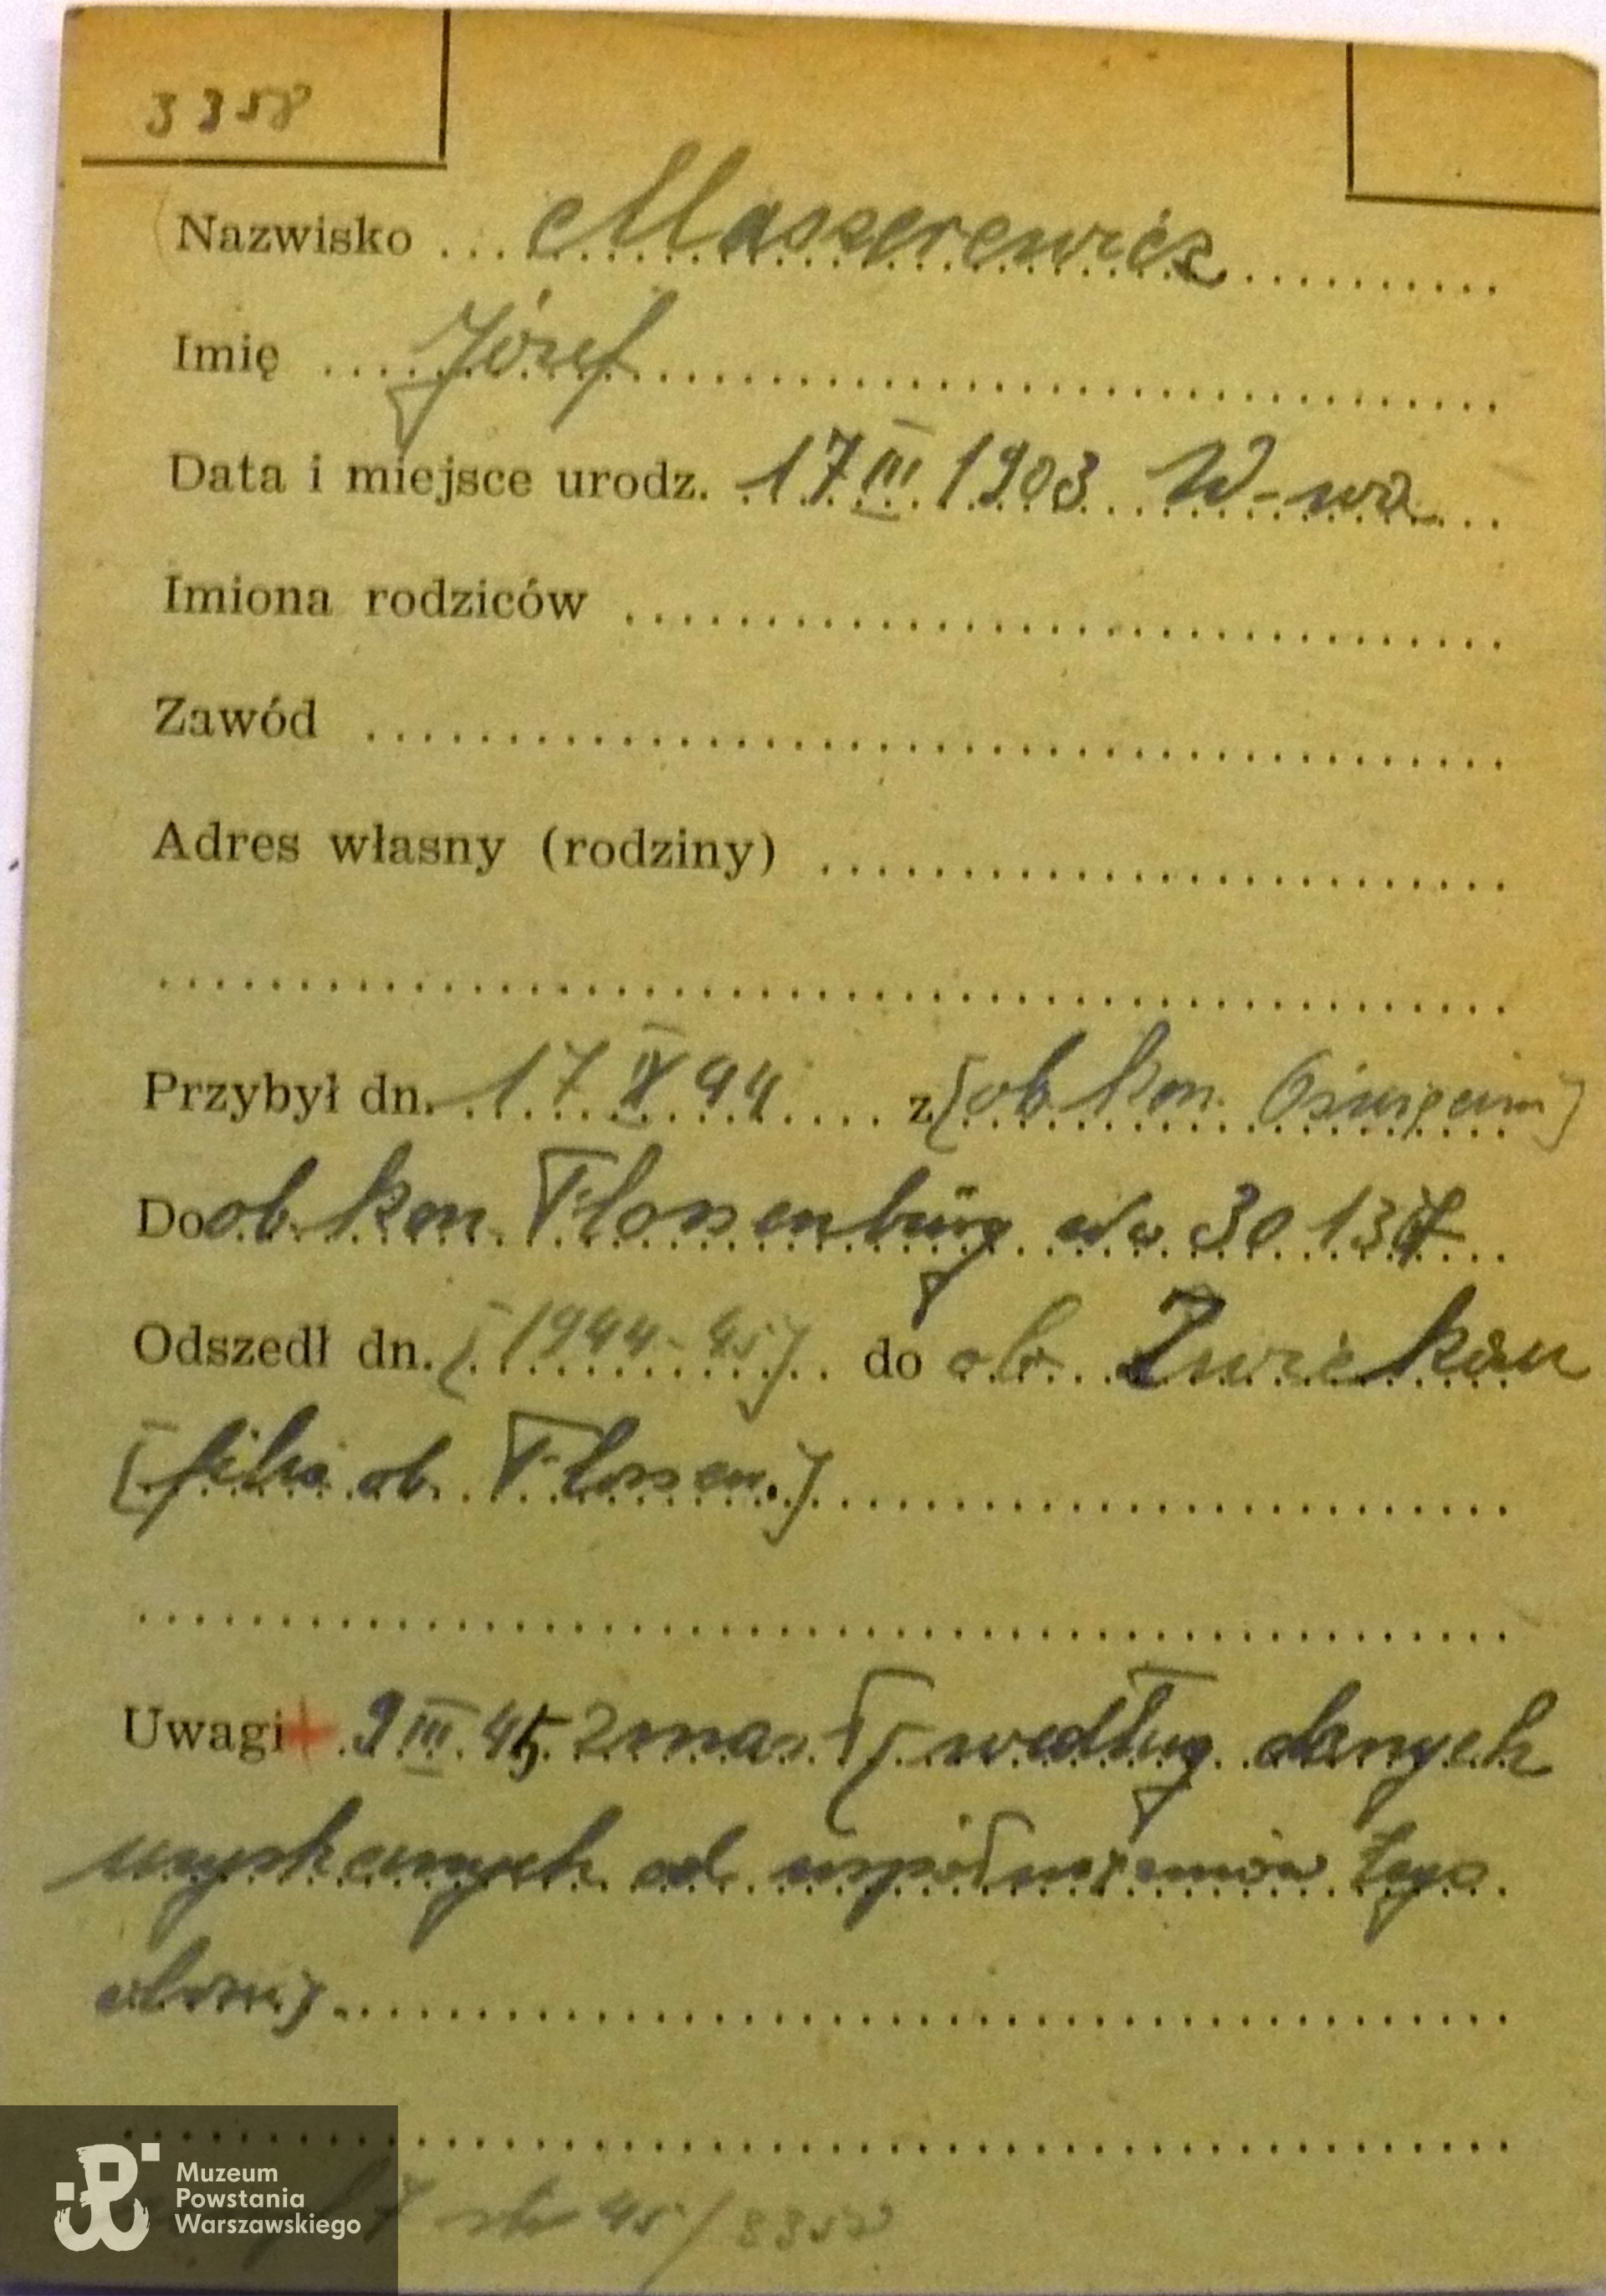 3358
Nazwisko ... Maszerewicz
Imię .... Józef
Data i miejsce urodz. 17 III 1903 W-wa
Imiona rodziców
Zawód
Adres własny (rodziny)
Przybył dn. 17 IX 44 z [ob kon. Oświęcim]
Do ob. kon. Flossenbürg Nr 30137
Odszedł dn. [1944-45] do ob. Zwickau
[filia ob. Flossen.]
Uwagi + 9 III 45 zmarł [według danych
uzyskanych od współwięźniów tego
obozu]
Muzeum
Powstania
Warszawskiego
str 45/3358